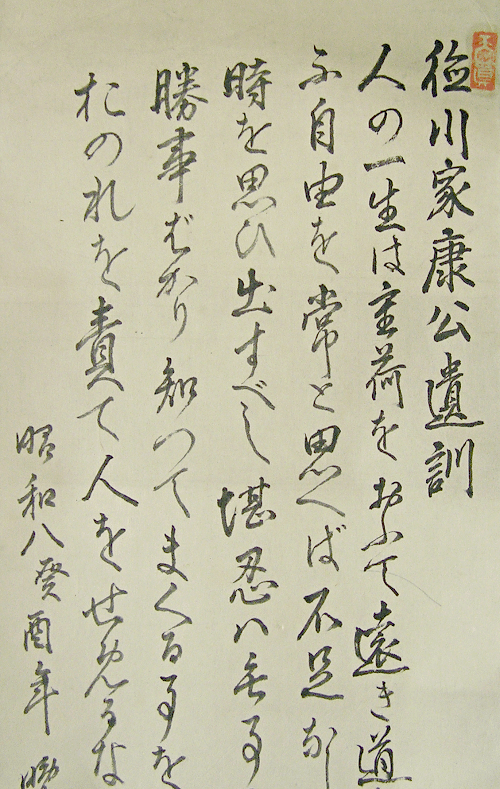 徳川家康公遺訓
人の一生は重荷をおふて遠き道
不自由を常と思へば不足なし
時を思ひ出すべし堪忍ハ無事
勝事ばかり知つてまくる事を
おのれを責て人をせむるな
昭和八癸酉年